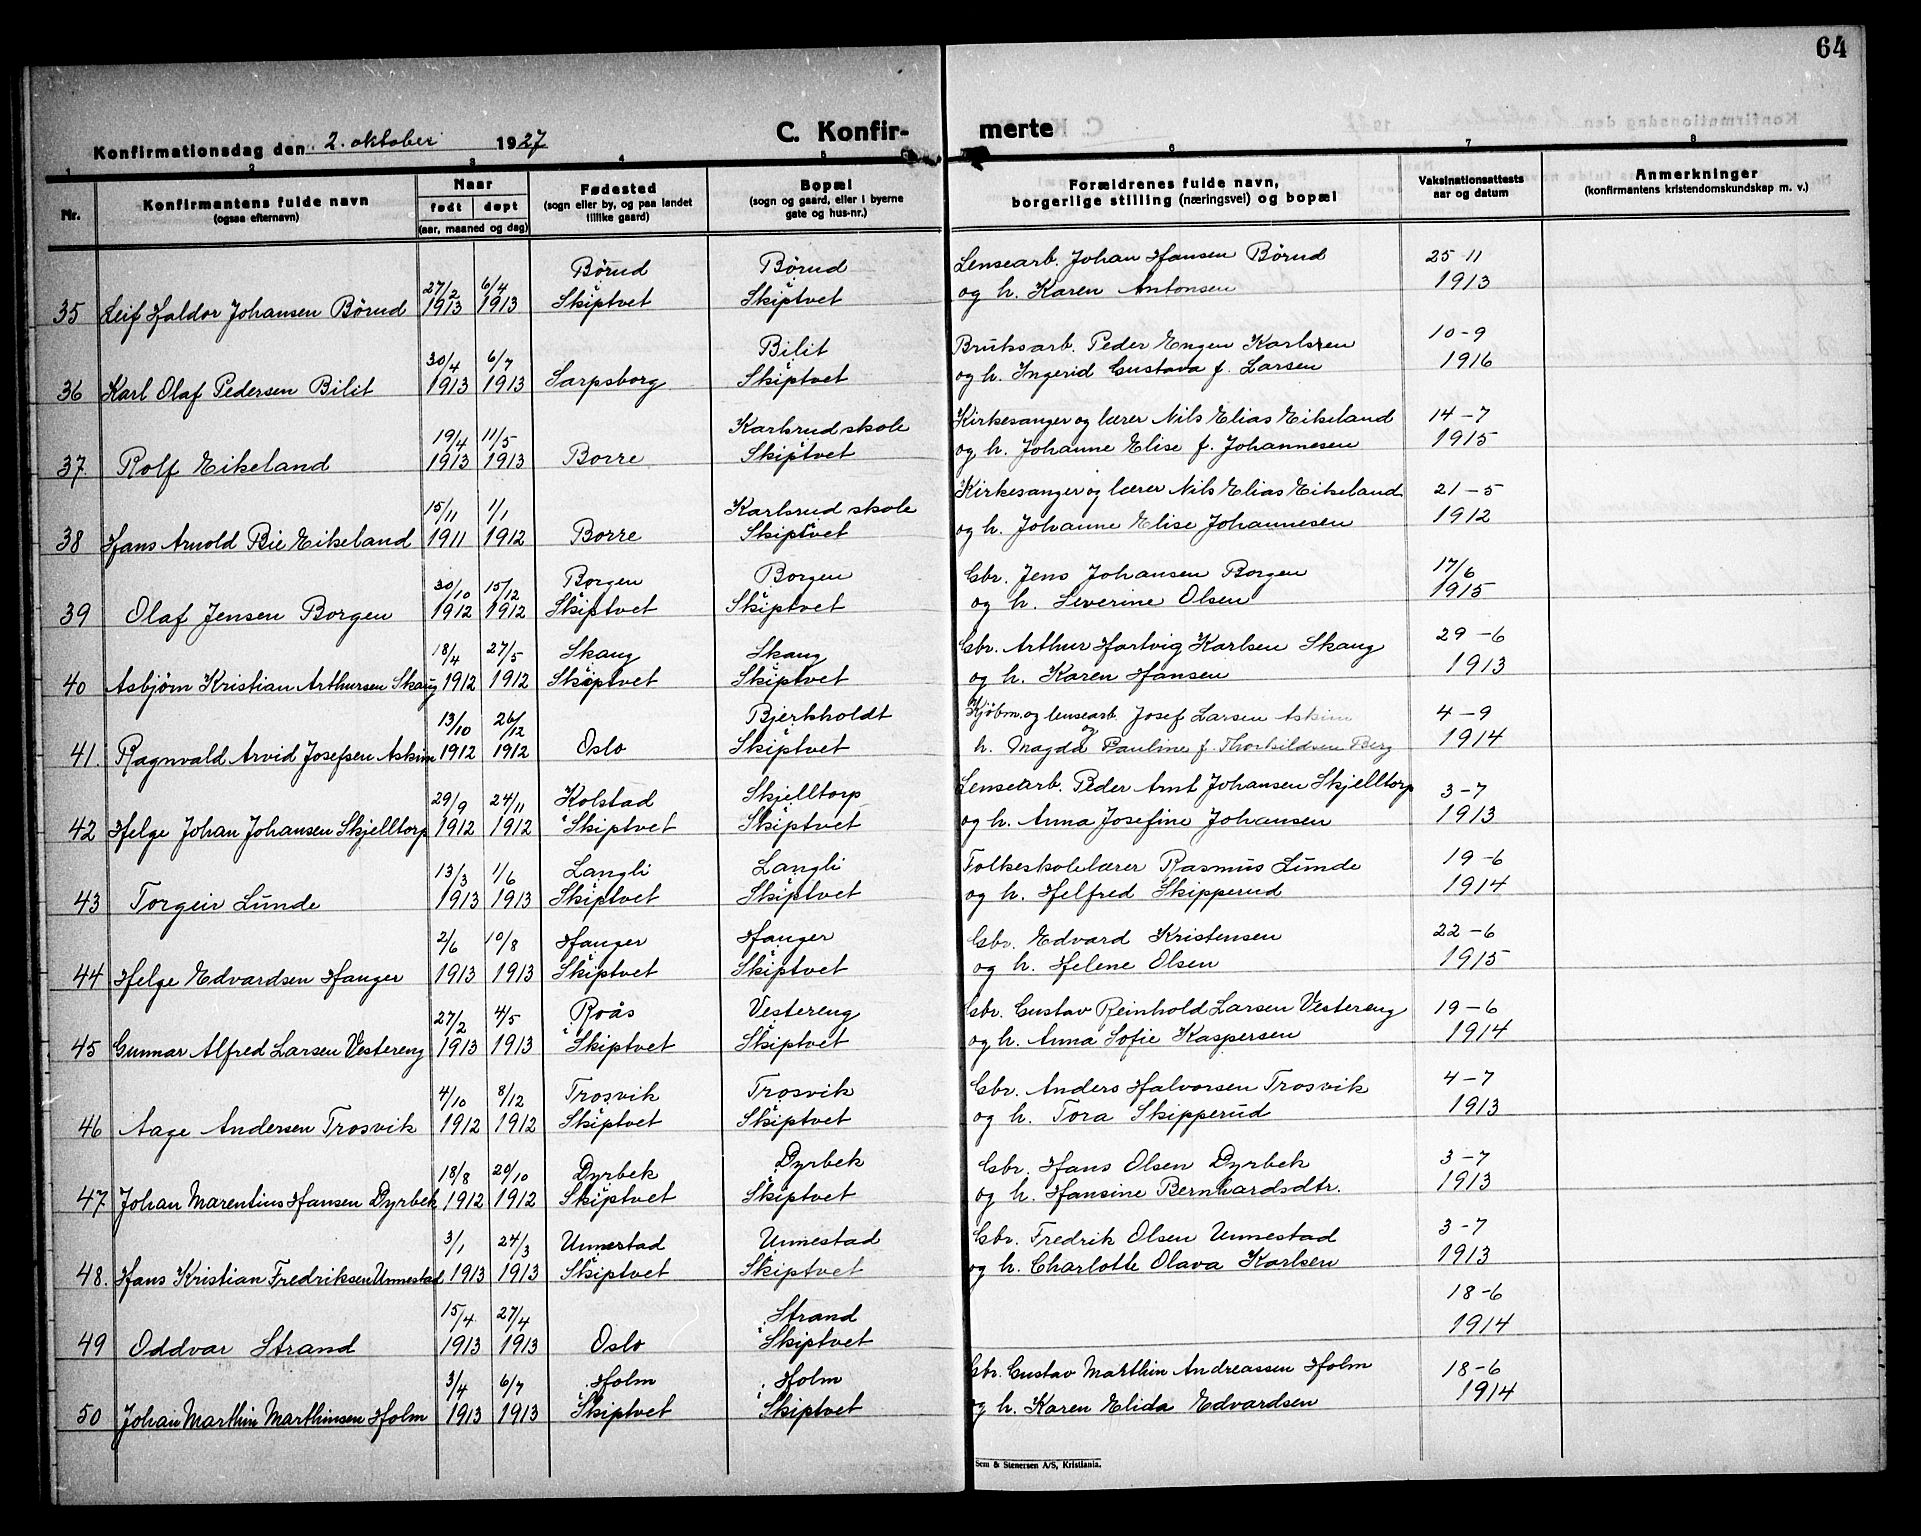 64
C. Konfir- merte
Konfirmationsdag den 2. oktober 1927
1 2 3 4 5 6 7 8
Nr.
Konfirmantens fulde navn
(ogsaa efternavn)
Naar
født døpt
(aar, maaned og dag)
Fødested
(sogn eller by, og paa landet
tillike gaard)
Bopæl
(sogn og gaard, eller i byerne
gate og hus-nr.)
Forældrenes fulde navn,
borgerlige stilling (næringsvei) og bopæl
Vaksinationsattests
aar og datum
Anmerkninger
(konfirmantens kristendomskundskap m. v.)
27/2 6/4 Børud Børud Lensearb. Johan Hansen Børud 25-11
35 Leif Haldor Johansen Børud 1913 1913 Skiptvet Skiptvet og h. Karen Antonsen 1913
30/4 6/7 Bilit Bruksarb. Peder Engen Karlsen 10-9
36 Karl Olaf Pedersen Bilit 1913 1913 Sarpsborg Skiptvet og h. Ingerid Gustava f. Larsen 1916
19/4 11/5 Karlsrud skole Kirkesanger og lærer Nils Elias Eikeland 14-7
37. Rolf Eikeland 1913 1913 Borre Skiptvet og h. Johanne Elise f. Johannesen 1915
15/11 1/1 Karlsrud skole Kirkesanger og lærer Nils Elias Eikeland 21-5
38 Hans Arnold Bie Eikeland 1911 1912 Borre Skiptvet og h. Johanne Elise Johannesen 1912
30/10 15/12 Borgen Borgen Gbr. Jens Johansen Borgen 17/6
39 Olaf Jensen Borgen 1912 1912 Skiptvet Skiptvet og h. Severine Olsen 1915
18/4 27/5 Skaug Skaug Gbr. Arthur Hartvig Karlsen Skaug 29-6
40 Asbjørn Kristian Arthursen Skaug 1912 1912 Skiptvet Skiptvet og h. Karen Hansen 1913
13/10 26/12 Bjerkholdt Kjøbm. og lensearb. Josef Larsen Askim 4-9
41. Ragnvald Arvid Josefsen Askim 1912 1912 Oslo Skiptvet og h. Magda Pauline f. Thorkildsen Berg 1914
29/9 24/11 Kolstad Skjelltorp Lensearb. Peder Arnt Johansen Skjelltorp 3-7
42 Helge Johan Johansen Skjelltorp 1912 1912 i Skiptvet Skiptvet og h. Anna Josefine Johansen 1913
13/3 1/6 Langli Langli Folkeskolelærer Rasmus Lunde 19-6
43 Torgeir Lunde 1913 1913 Skiptvet Skiptvet og h. Helfred Skipperud 1914
2/6 10/8 Hanger Hanger Gbr. Edvard Kristensen 22-6
44 Helge Edvardsen Hanger 1913 1913 Skiptvet Skiptvet og h. Helene Olsen 1915
27/2 4/5 Roås Vestereng Gbr. Gustav Reinhold Larsen Vestereng 19-6
45 Gunnar Alfred Larsen Vestereng 1913 1913 i Skiptvet Skiptvet og h. Anna Sofie Kaspersen 1914
4/10 8/12 Trosvik Trosvik Gbr. Anders Halvorsen Trosvik 4-7
46 Aage Andersen Trosvik 1912 1912 Skiptvet Skiptvet og h. Tora Skipperud 1913
18/8 20/10 Dyrbek Dyrbek Gbr. Hans Olsen Dyrbek 3-7
47. Johan Marentius Hansen Dyrbek 1912 1912 Skiptvet Skiptvet og h. Hansine Bernhardsdtr. 1913
3/1 24/3 Unnestad Unnestad Gbr. Fredrik Olsen Unnestad 3-7
48. Hans Kristian Fredriksen Unnestad 1913 1913 Skiptvet Skiptvet og h. Charlotte Olava Karlsen 1913
15/4 27/4 Strand 18-6
49 Oddvar Strand 1913 1913 Oslo i Skiptvet 1914
3/4 6/7 Holm Holm Gbr. Gustav Marthin Andreassen Holm 18-6
50 Johan Marthin Marthinsen Holm 1913 1913 i Skiptvet i Skiptvet og h. Karen Elida Edvardsen 1914
Sem & Stenersen A/S, Kristiania.